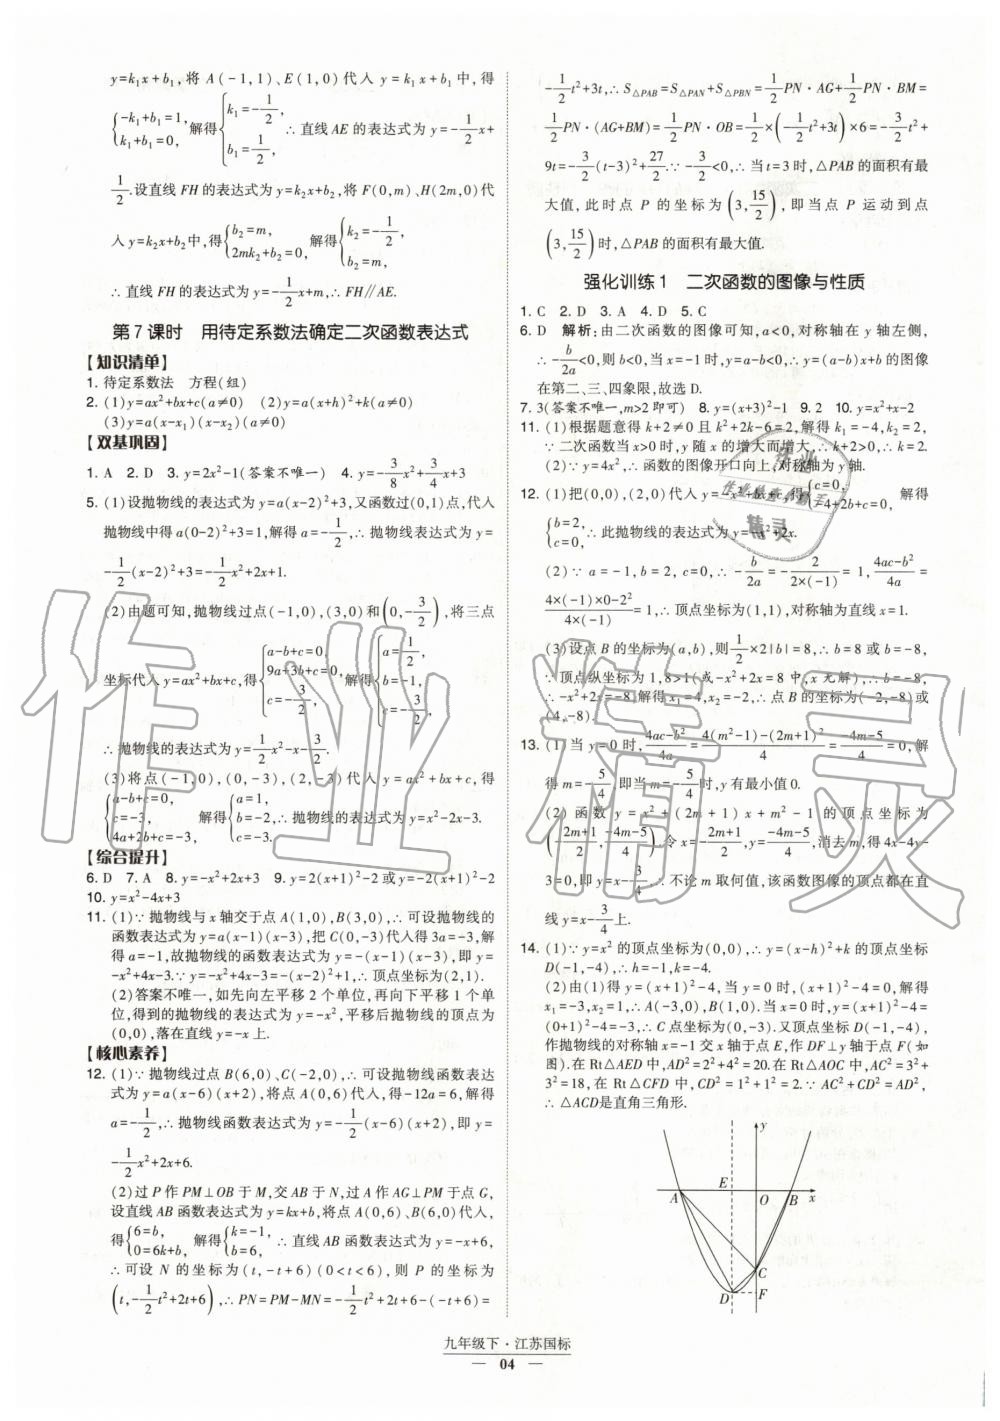 y=k₁x+b₁,将 A(-1,1)、E(1,0)代入 y=k₁x+b₁中,得
{-k₁+b₁=1, k₁+b₁=0, 解得{k₁=-1/2, b₁=1/2, ∴直线 AE 的表达式为 y=-1/2x+
1/2.设直线 FH 的表达式为 y=k₂x+b₂,将 F(0,m)、H(2m,0)代
入 y=k₂x+b₂中,得{b₂=m, 2mk₂+b₂=0, 解得{k₂=-1/2, b₂=m,
∴直线 FH 的表达式为 y=-1/2x+m,∴FH∥AE.
第 7 课时 用待定系数法确定二次函数表达式
【知识清单】
1. 待定系数法 方程(组)
2. (1)y=ax²+bx+c(a≠0) (2)y=a(x+h)²+k(a≠0)
(3)y=a(x-x₁)(x-x₂)(a≠0)
【双基巩固】
1. A 2. D 3. y=2x²-1(答案不唯一) 4. y=-3/8x²+3/4x+3
5. (1)设抛物线的表达式为 y=a(x-2)²+3,又函数过(0,1)点,代入
抛物线中得 a(0-2)²+3=1,解得 a=-1/2,∴抛物线表达式为 y=
-1/2(x-2)²+3=-1/2x²+2x+1.
(2)由题可知,抛物线过点(-1,0),(3,0)和(0,-3/2),将三点
坐标代入 y=ax²+bx+c,得{a-b+c=0, 9a+3b+c=0, c=-3/2, 解得{a=1/2, b=-1, c=-3/2,
∴抛物线的表达式为 y=1/2x²-x-3/2.
(3)将点(-1,0),(0,-3),(2,-3)代入 y=ax²+bx+c,得
{a-b+c=0, c=-3, 4a+2b+c=-3, 解得{a=1, b=-2, c=-3. ∴抛物线的表达式为 y=x²-2x-3.
【综合提升】
6. D 7. A 8. y=-x²+2x+3 9. y=2(x+1)²-2或 y=-2(x+1)²-2
10. y=x²-4x+3
11. (1)∵抛物线与 x 轴交于点 A(1,0),B(3,0),∴可设抛物线的
函数表达式为 y=a(x-1)(x-3),把 C(0,-3)代入得 3a=-3,解
得 a=-1,故抛物线的函数表达式为 y=-(x-1)(x-3),即 y=
-x²+4x-3.∵y=-x²+4x-3=-(x-2)²+1,∴顶点坐标为(2,1).
(2)答案不唯一,如先向左平移 2 个单位,再向下平移 1 个单
位,得到的抛物线的表达式为 y=-x²,平移后抛物线的顶点为
(0,0),落在直线 y=-x 上.
【核心素养】
12. (1)∵抛物线过点 B(6,0)、C(-2,0),∴可设抛物线函数表达
式为 y=a(x-6)(x+2),将点 A(0,6)代入,得-12a=6,解得
a=-1/2,∴抛物线函数表达式为 y=-1/2(x-6)(x+2),即 y=
-1/2x²+2x+6.
(2)过 P 作 PM⊥OB 于 M,交 AB 于 N,过 A 作 AG⊥PM 于点 G,
设直线 AB 函数表达式为 y=kx+b,将点 A(0,6)、B(6,0)代入,
得{6=b, 0=6k+b, 解得{k=-1, b=6, ∴直线 AB 函数表达式为 y=-x+6,
∴可设 N 的坐标为(t,-t+6)(0<t<6),则 P 的坐标为
(t,-1/2t²+2t+6),∴PN=PM-MN=-1/2t²+2t+6-(-t+6)=
-1/2t²+3t,∴S△PAB=S△PAN+S△PBN=1/2PN·AG+1/2PN·BM=
1/2PN·(AG+BM)=1/2PN·OB=1/2×(-1/2t²+3t)×6=-3/2t²+
9t=-3/2(t-3)²+27/2.∵-3/2<0,∴当 t=3 时,△PAB 的面积有最
大值,此时点 P 的坐标为(3,15/2),即当点 P 运动到点
(3,15/2)时,△PAB 的面积有最大值.
强化训练 1 二次函数的图像与性质
1. C 2. D 3. A 4. D 5. C
6. D 解析:由二次函数的图像可知,a<0,对称轴在 y 轴左侧,
∴-b/2a<0,则 b<0,当 x=-1 时,y=a-b<0,∴y=(a-b)x+b 的图像
在第二、三、四象限,故选 D.
7. 3(答案不唯一,m>2 即可) 8. y=(x+3)²-1 9. 2 10. y=x²+x-2
11. (1)根据题意得 k+2≠0 且 k²+2k-6=2,解得 k₁=-4,k₂=2,
∵二次函数当 x>0 时,y 随 x 的增大而增大,∴k+2>0,∴k=2.
(2)∵y=4x²,∴函数的图像开口向上,对称轴为 y 轴.
12. (1)把(0,0),(2,0)代入 y=-x²+bx+c,得{c=0, -4+2b+c=0, 解得
{b=2, c=0, ∴此抛物线的表达式为 y=-x²+2x.
(2)∵a=-1,b=2,c=0,∴-b/2a=-2/(2×(-1))=1,(4ac-b²)/4a=
(4×(-1)×0-2²)/(4×(-1))=1,∴顶点坐标为(1,1),对称轴为直线 x=1.
(3)设点 B 的坐标为(a,b),则1/2×2|b|=8,∴b=8 或 b=-8,
∵顶点纵坐标为 1,8>1(或-x²+2x=8 中,x 无解),∴b=-8,
∴-x²+2x=-8,解得 x₁=4,x₂=-2,∴点 B 的坐标为(-2,-8)或
(4,-8).
13. (1)当 y=0 时,(4ac-b²)/4a=(4(m²-1)-(2m+1)²)/4=(-4m-5)/4=0,解
得 m=-5/4,即当 m=-5/4时,y 有最小值 0.
(2)函数 y=x²+(2m+1)x+m²-1 的顶点坐标为
(-(2m+1)/2,(-4m-5)/4).令 x=-(2m+1)/2,y=(-4m-5)/4,消去 m,得 4x-4y-
3=0,即 y=x-3/4.∴不论 m 取何值,该函数图像的顶点都在直
线 y=x-3/4上.
14. (1)∵y=x² 的顶点坐标为(0,0),∴y=(x-h)²+k 的顶点坐标
D(-1,-4),∴h=-1,k=-4.
(2)由(1)得 y=(x+1)²-4,当 y=0 时,(x+1)²-4=0,解得
x₁=-3,x₂=1,∴A(-3,0),B(1,0).当 x=0 时,y=(x+1)²-4=
(0+1)²-4=-3,∴C 点坐标为(0,-3).又顶点坐标 D(-1,-4),
作抛物线的对称轴 x=-1 交 x 轴于点 E,作 DF⊥y 轴于点 F(如
图).在 Rt△AED 中,AD²=2²+4²=20.在 Rt△AOC 中,AC²=3²+
3²=18,在 Rt△CFD 中,CD²=1²+1²=2.∵AC²+CD²=AD²,
∴△ACD 是直角三角形.
y
E
A O B x
C
D F
九年级下·江苏国标
— 04 —
作业精灵